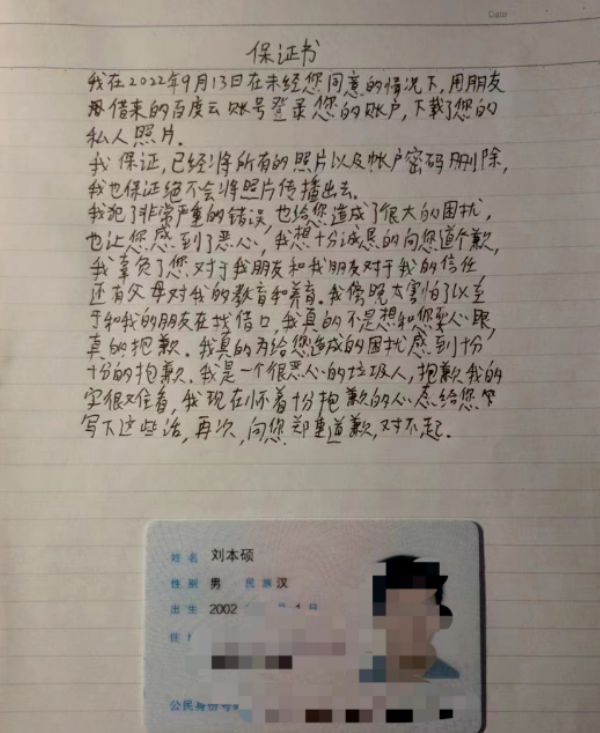 Date
保证书
我在2022年9月13日在未经您同意的情况下,用朋友
借来的百度云账号登录您的账户,下载了您的
私人照片.
我保证,已经将所有的照片以及帐户密码删除,
我也保证绝不会将照片传播出去.
我犯了非常严重的错误,也给您造成了很大的困扰,
也让您感到了恶心,我想十分诚恳的向您道个歉,
我辜负了您对于我朋友和我朋友对于我的信任,
还有父母对我的教育和养育.我傍晚太害怕了以至
于和我的朋友在找借口,我真的不是想和您耍心眼,
真的抱歉.我真的为给您造成的困扰感到十分
十分的抱歉.我是一个很恶心的垃圾人,抱歉我的
字很又住着,我现在怀着十分抱歉的心态给您
写下这些话,再次,向您郑重道歉,对不起.
姓名 刘本硕
性别 男 民族 汉
出生 2002
住
公民身份号